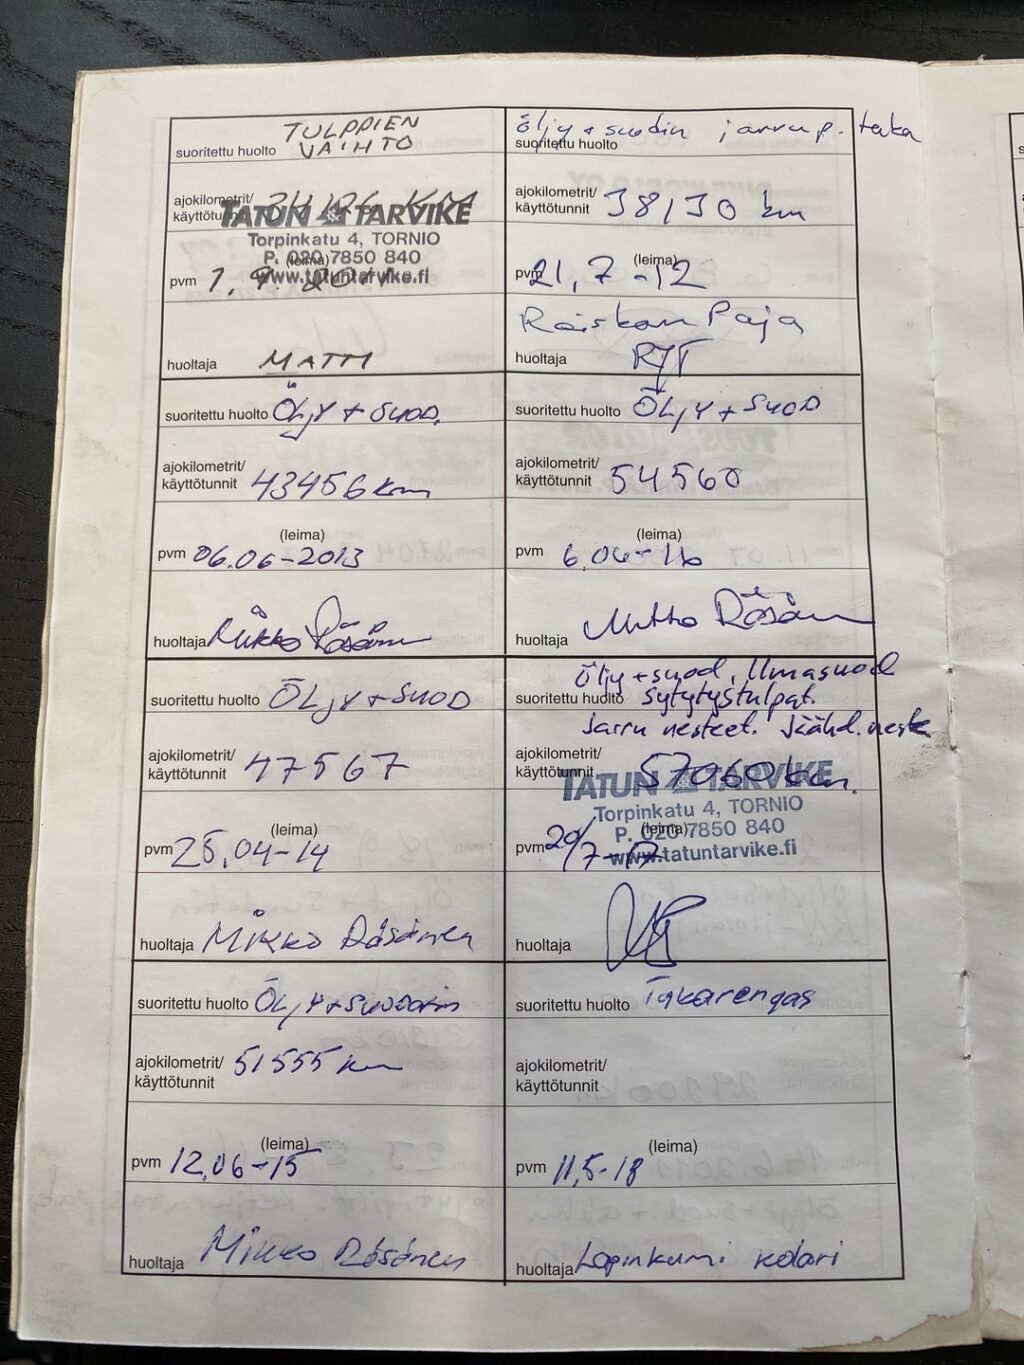 TULPPIEN
suoritettu huolto VAIHTO
ajokilometrit/
käyttötunnit KM
TATUN TARVIKE
Torpinkatu 4, TORNIO
P. 020 7850 840
(leima)
www.tatuntarvike.fi
pvm 1. 2011
huoltaja MATTI
öljy + suodin jarrup. taka
suoritettu huolto
ajokilometrit/
käyttötunnit 38130 km
(leima)
pvm 21,7-12
Raiskan Paja
huoltaja
suoritettu huolto ÖLJY + SUOD.
ajokilometrit/
käyttötunnit 43456 km
(leima)
pvm 06.06-2013
huoltaja Mikko Räsänen
suoritettu huolto ÖLJY + SUOD
ajokilometrit/
käyttötunnit 54560
(leima)
pvm 6,04-16
huoltaja Mikko Räsänen
suoritettu huolto ÖLJY + SUOD
ajokilometrit/
käyttötunnit 47567
(leima)
pvm 25.04-14
huoltaja Mikko Räsänen
öljy + suod, Ilmasuod
suoritettu huolto sytytystulpat.
Jarru nesteet. Jäähd. neste
ajokilometrit/
käyttötunnit 57060 km.
TATUN TARVIKE
Torpinkatu 4, TORNIO
P. 020 7850 840
(leima)
pvm 20/7-17
www.tatuntarvike.fi
huoltaja
suoritettu huolto ÖLJY + SUODATIN
ajokilometrit/
käyttötunnit 51555 km
(leima)
pvm 12.06-15
huoltaja Mikko Räsänen
suoritettu huolto Takarengas
ajokilometrit/
käyttötunnit
(leima)
pvm 11,5-18
huoltaja Lapinkumi Kolari